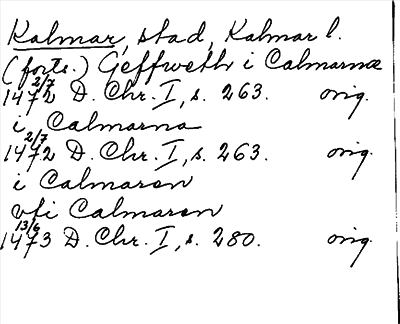 Kalmar, stad, Kalmar l.
(forts.) Geffweth i Calmarnæ
2/7
1472 D. Chr. I, s. 263. orig.
i Calmarna
2/7
1472 D. Chr. I, s. 263. orig.
i Calmaren
vfi Calmaren
13/6
1473 D. Chr. I, s. 280. orig.